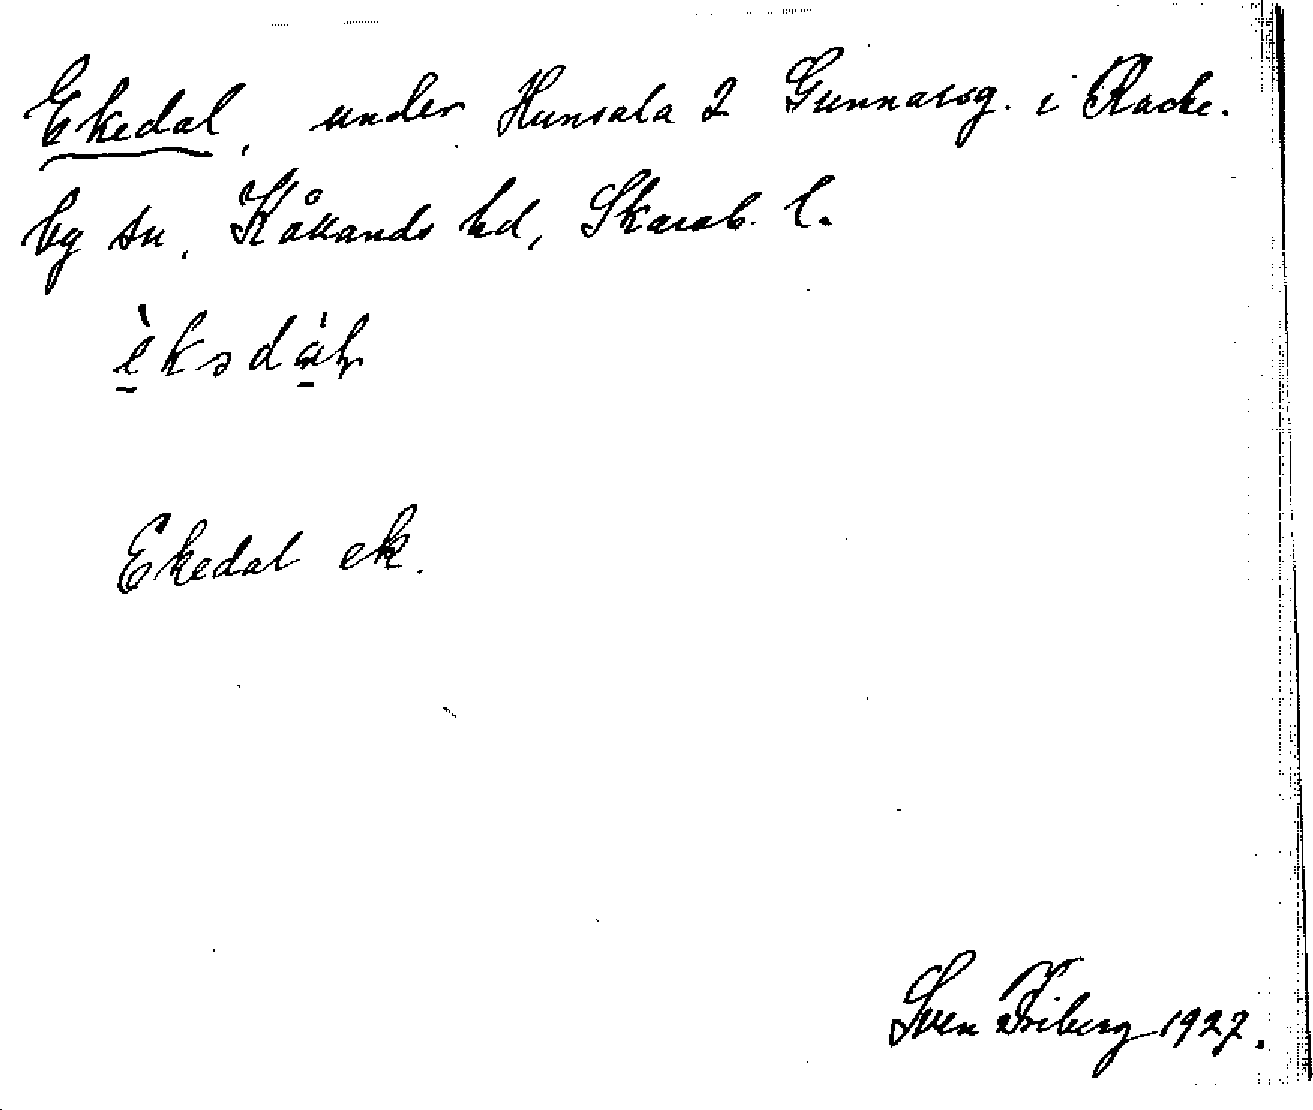 Ekedal, under Hunsala 2 Gunnarsg. i Racke.
by sn, Kållands hd, Skarab. l.
èksdàl
Ekedal ek.
Sven Friberg 1927.